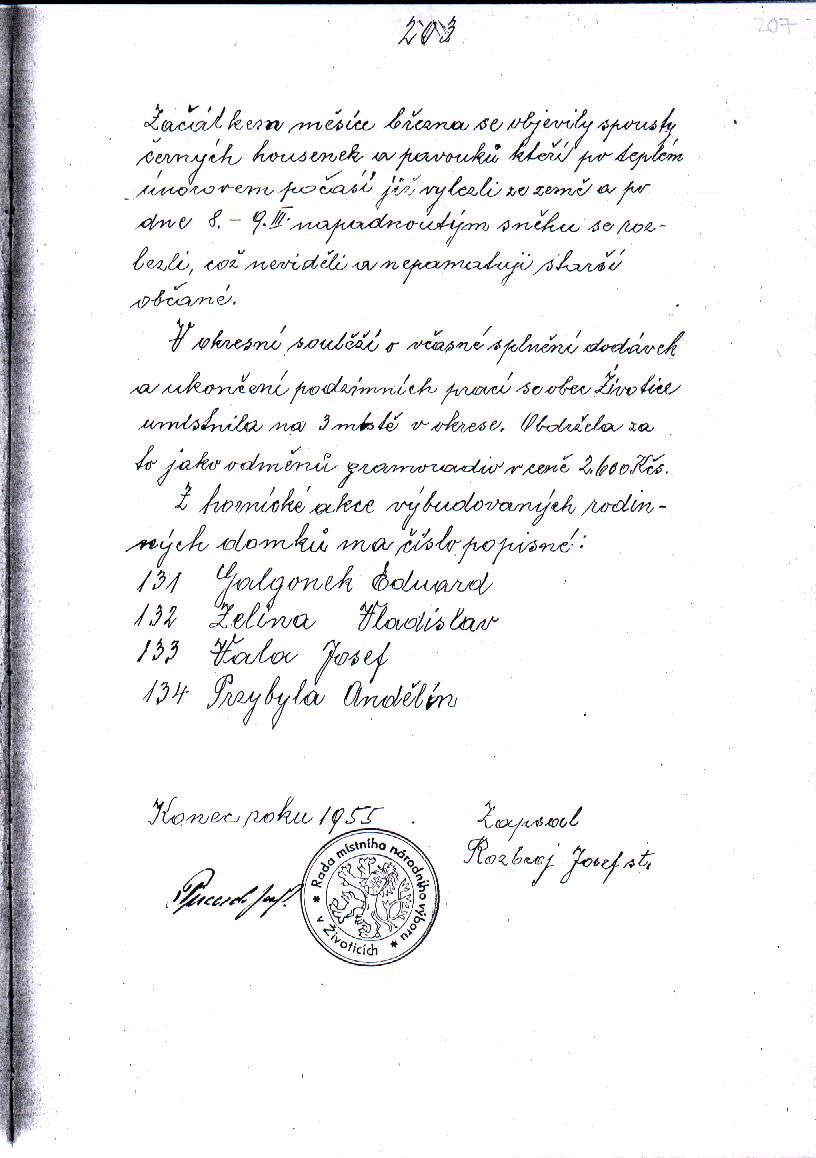 203
207
Začátkem měsíce března se objevily spousty
černých housenek a pavouků kteří po teplém
únorovem počasí již vylezli ze země a po
dne 8. – 9. III. napadnoutým sněhu se roz-
lezli, což neviděli a nepamatuji starší
občané.
V okresní soutěží o včasné splnění dodávek
a ukončení podzimních prací se obec Životice
umístnila na 3 místě v okrese. Obdržela za
to jako odměnů gramoradio v ceně 2.600 Kčs.
Z hornické akce výbudovaných rodin-
ných domků ma číslo popisné:
131 Galgonek Eduard
132 Zelina Vladislav
133 Vala Josef
134 Przybyla Andělín
Konec roku 1955
Zapsal
Rozbroj Josef st.
* Rada místního národního výboru *
v Životicích